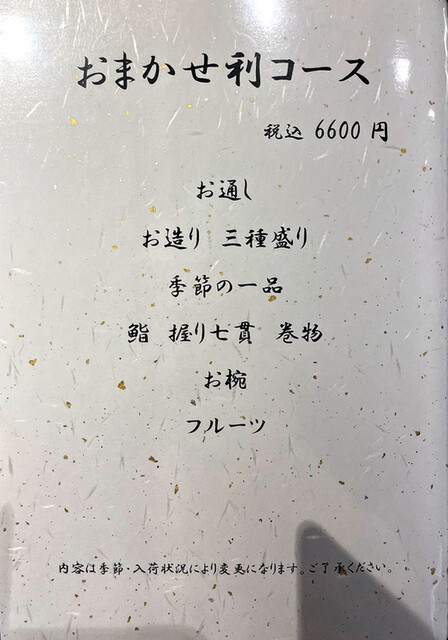 おまかせ利コース
税込 6600 円
お通し
お造り 三種盛り
季節の一品
鮨 握り七貫 巻物
お椀
フルーツ
内容は季節・入荷状況により変更になります。ご了承ください。